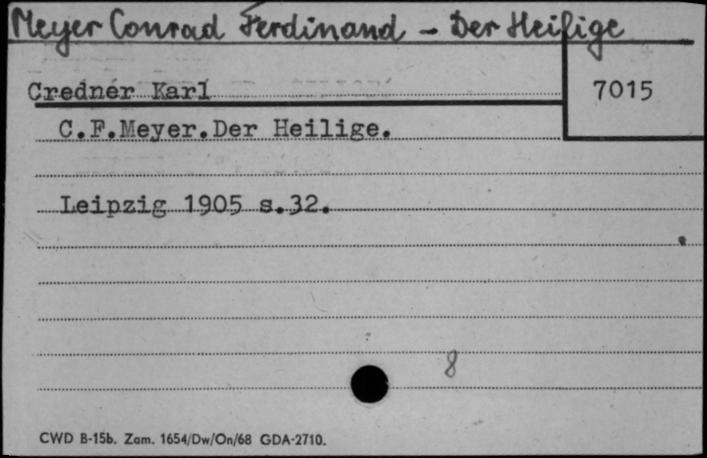 Meyer Conrad Ferdinand - Der Heilige
Credner Karl
7015
C.F.Meyer.Der Heilige.
Leipzig 1905 s.32.
8
CWD B-15b. Zam. 1654/Dw/On/68 GDA-2710.